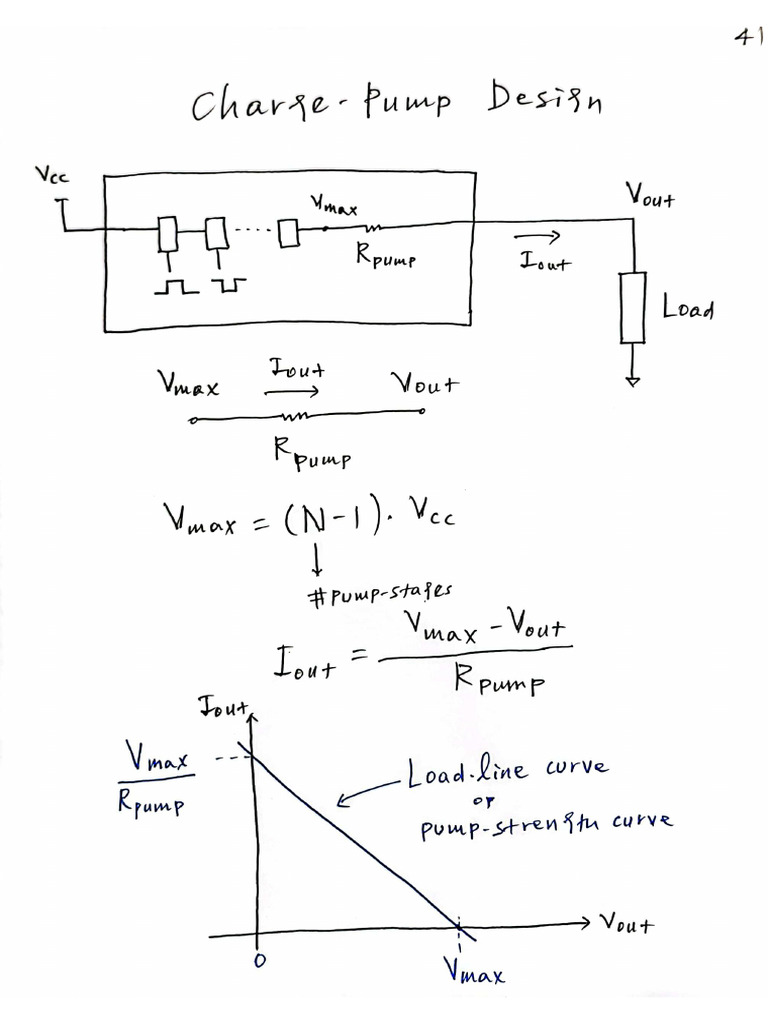 41
Charge-Pump Design
Vcc
Vmax
Rpump
Iout
Vout
Load
Vmax
Iout
Vout
Rpump
Vmax = (N-1). Vcc
↓
#pump-stages
Iout = Vmax - Vout / Rpump
Iout
Vmax / Rpump
Load-line curve
or
pump-strength curve
Vout
0
Vmax